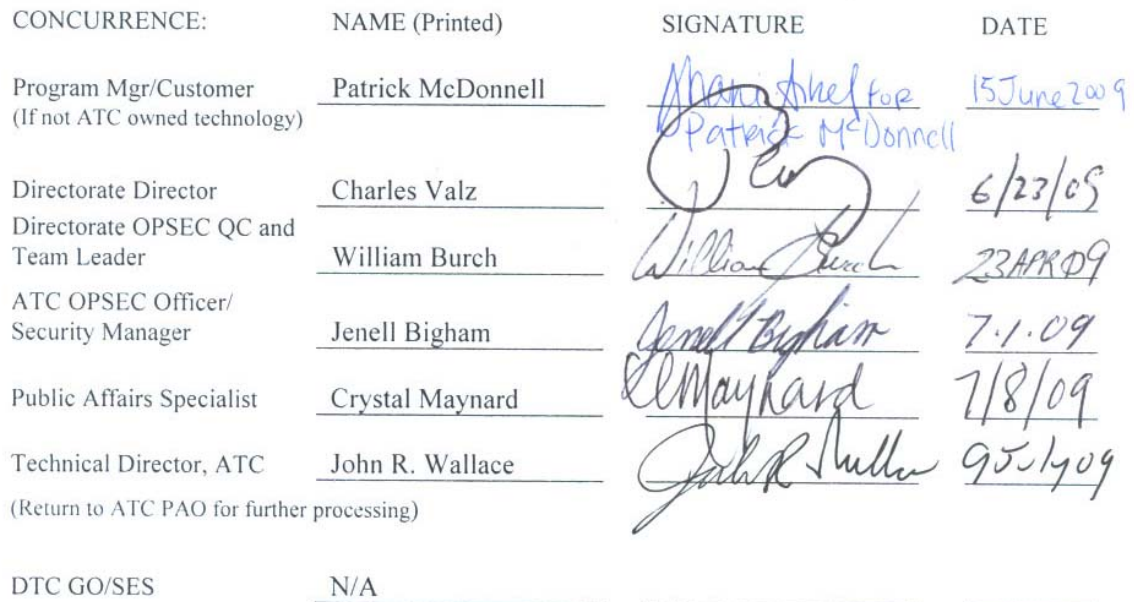 CONCURRENCE: NAME (Printed) SIGNATURE DATE
Program Mgr/Customer Patrick McDonnell for 15 June 2009
(If not ATC owned technology) Patrick McDonnell
Directorate Director Charles Valz 6/23/09
Directorate OPSEC QC and
Team Leader William Burch William Burch 23APR09
ATC OPSEC Officer/
Security Manager Jenell Bigham Jenell Bigham 7.1.09
Public Affairs Specialist Crystal Maynard Maynard 7/8/09
Technical Director, ATC John R. Wallace John R 9July09
(Return to ATC PAO for further processing)
DTC GO/SES N/A